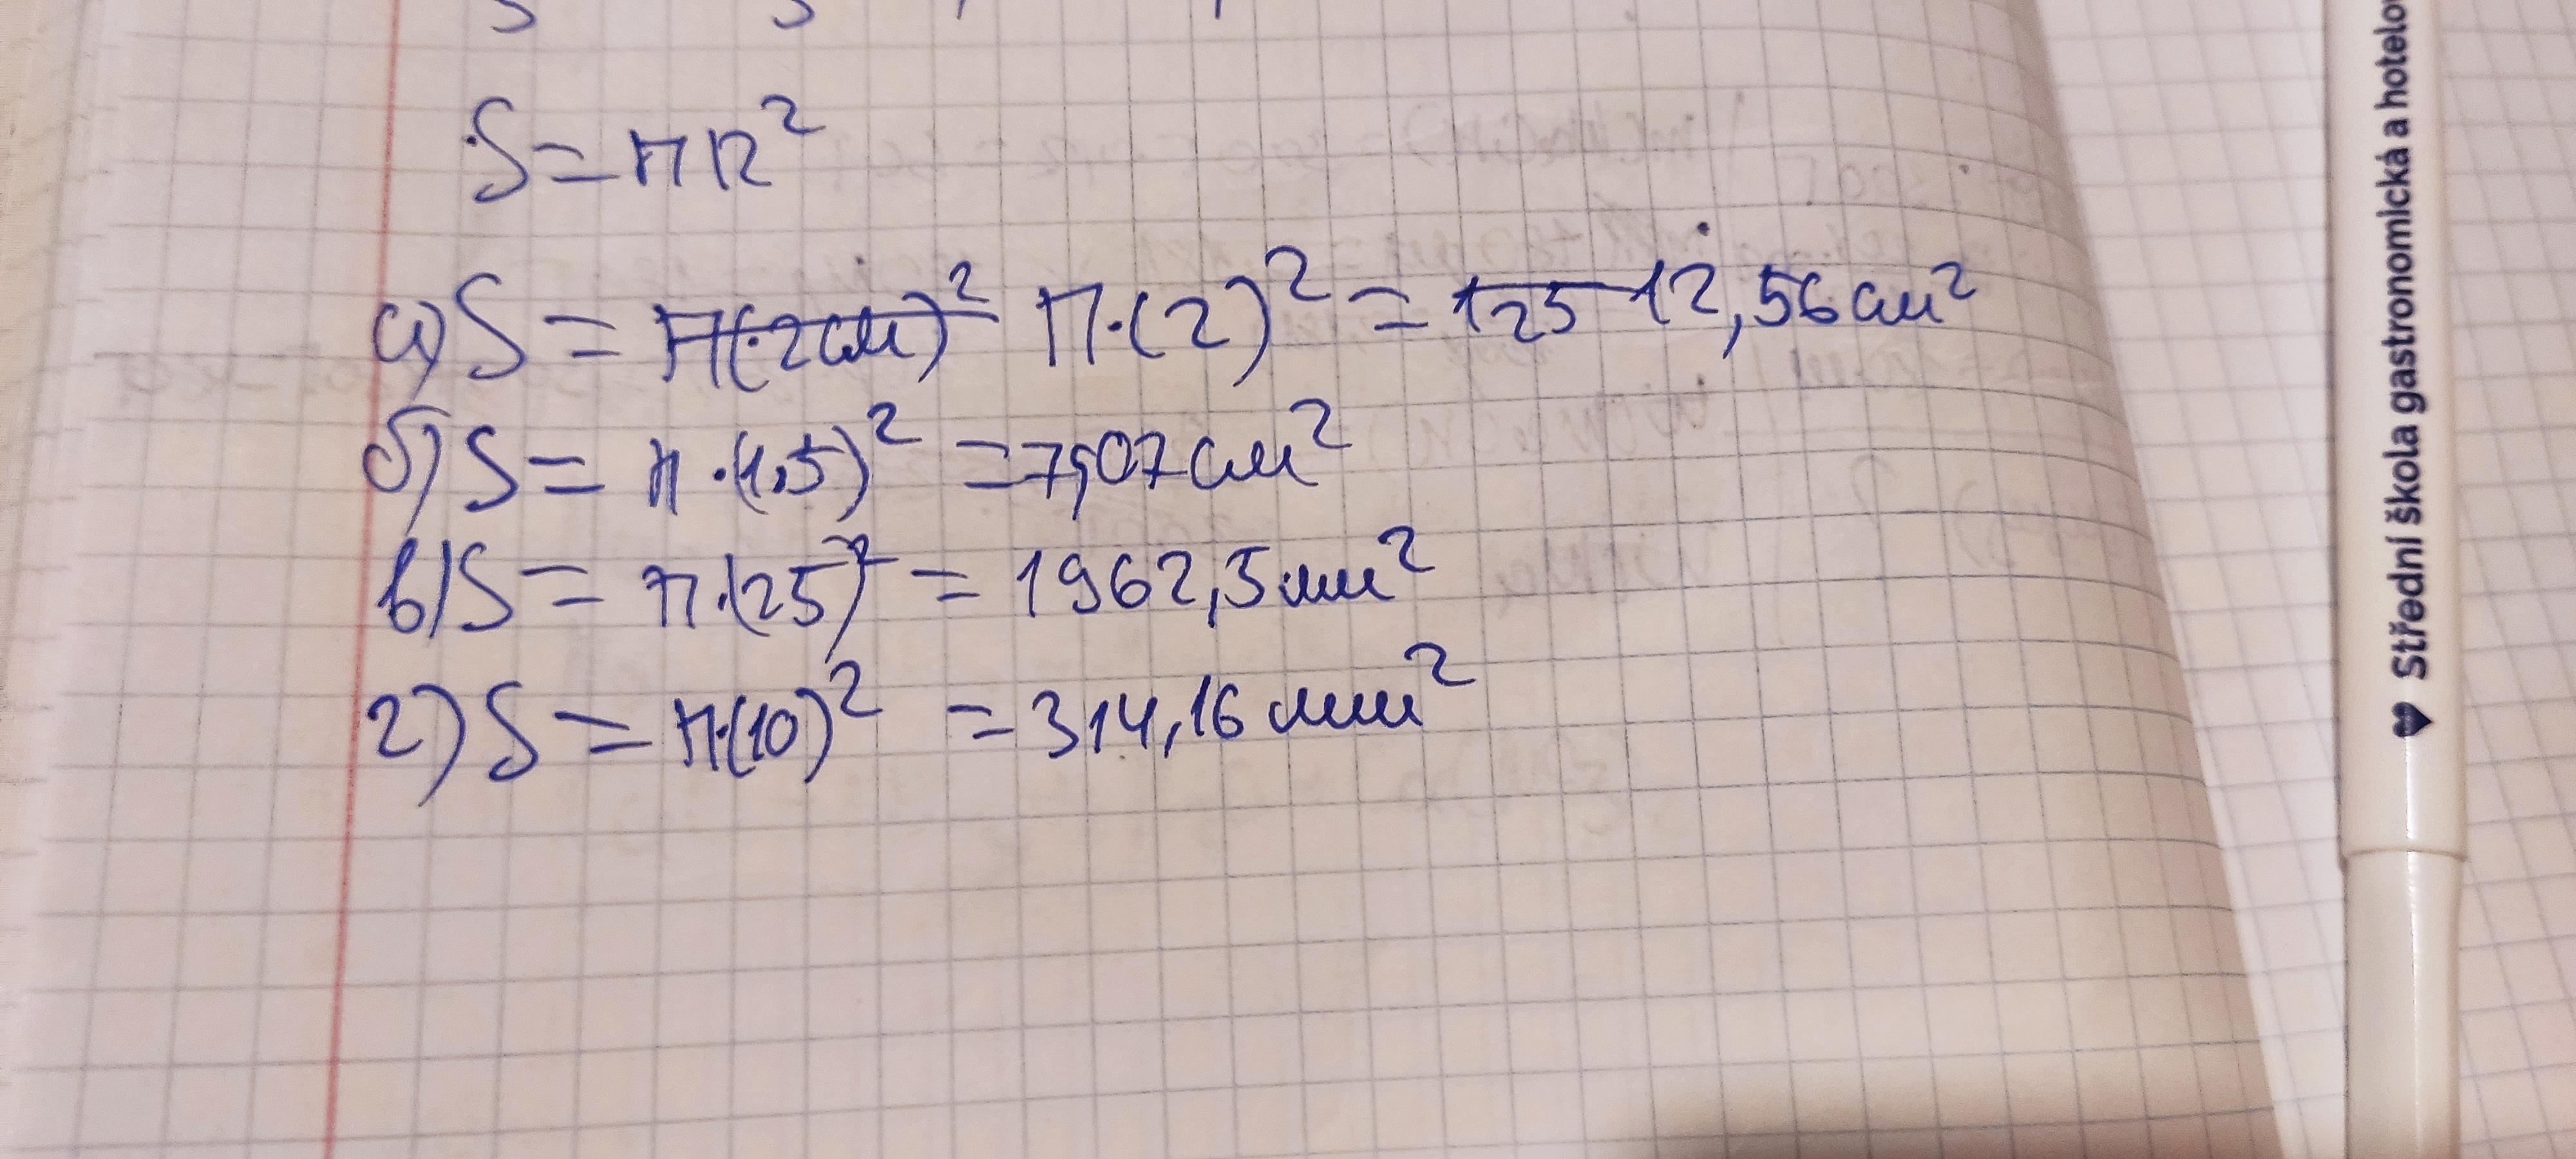 S = πR²
а) S = π(·2см)² π·(2)² = 125 12,56 см²
б) S = π·(1,5)² = 7,07 см²
в) S = π·(25)² = 1962,5 мм²
г) S = π·(10)² = 314,16 мм²
Střední škola gastronomická a hotelov